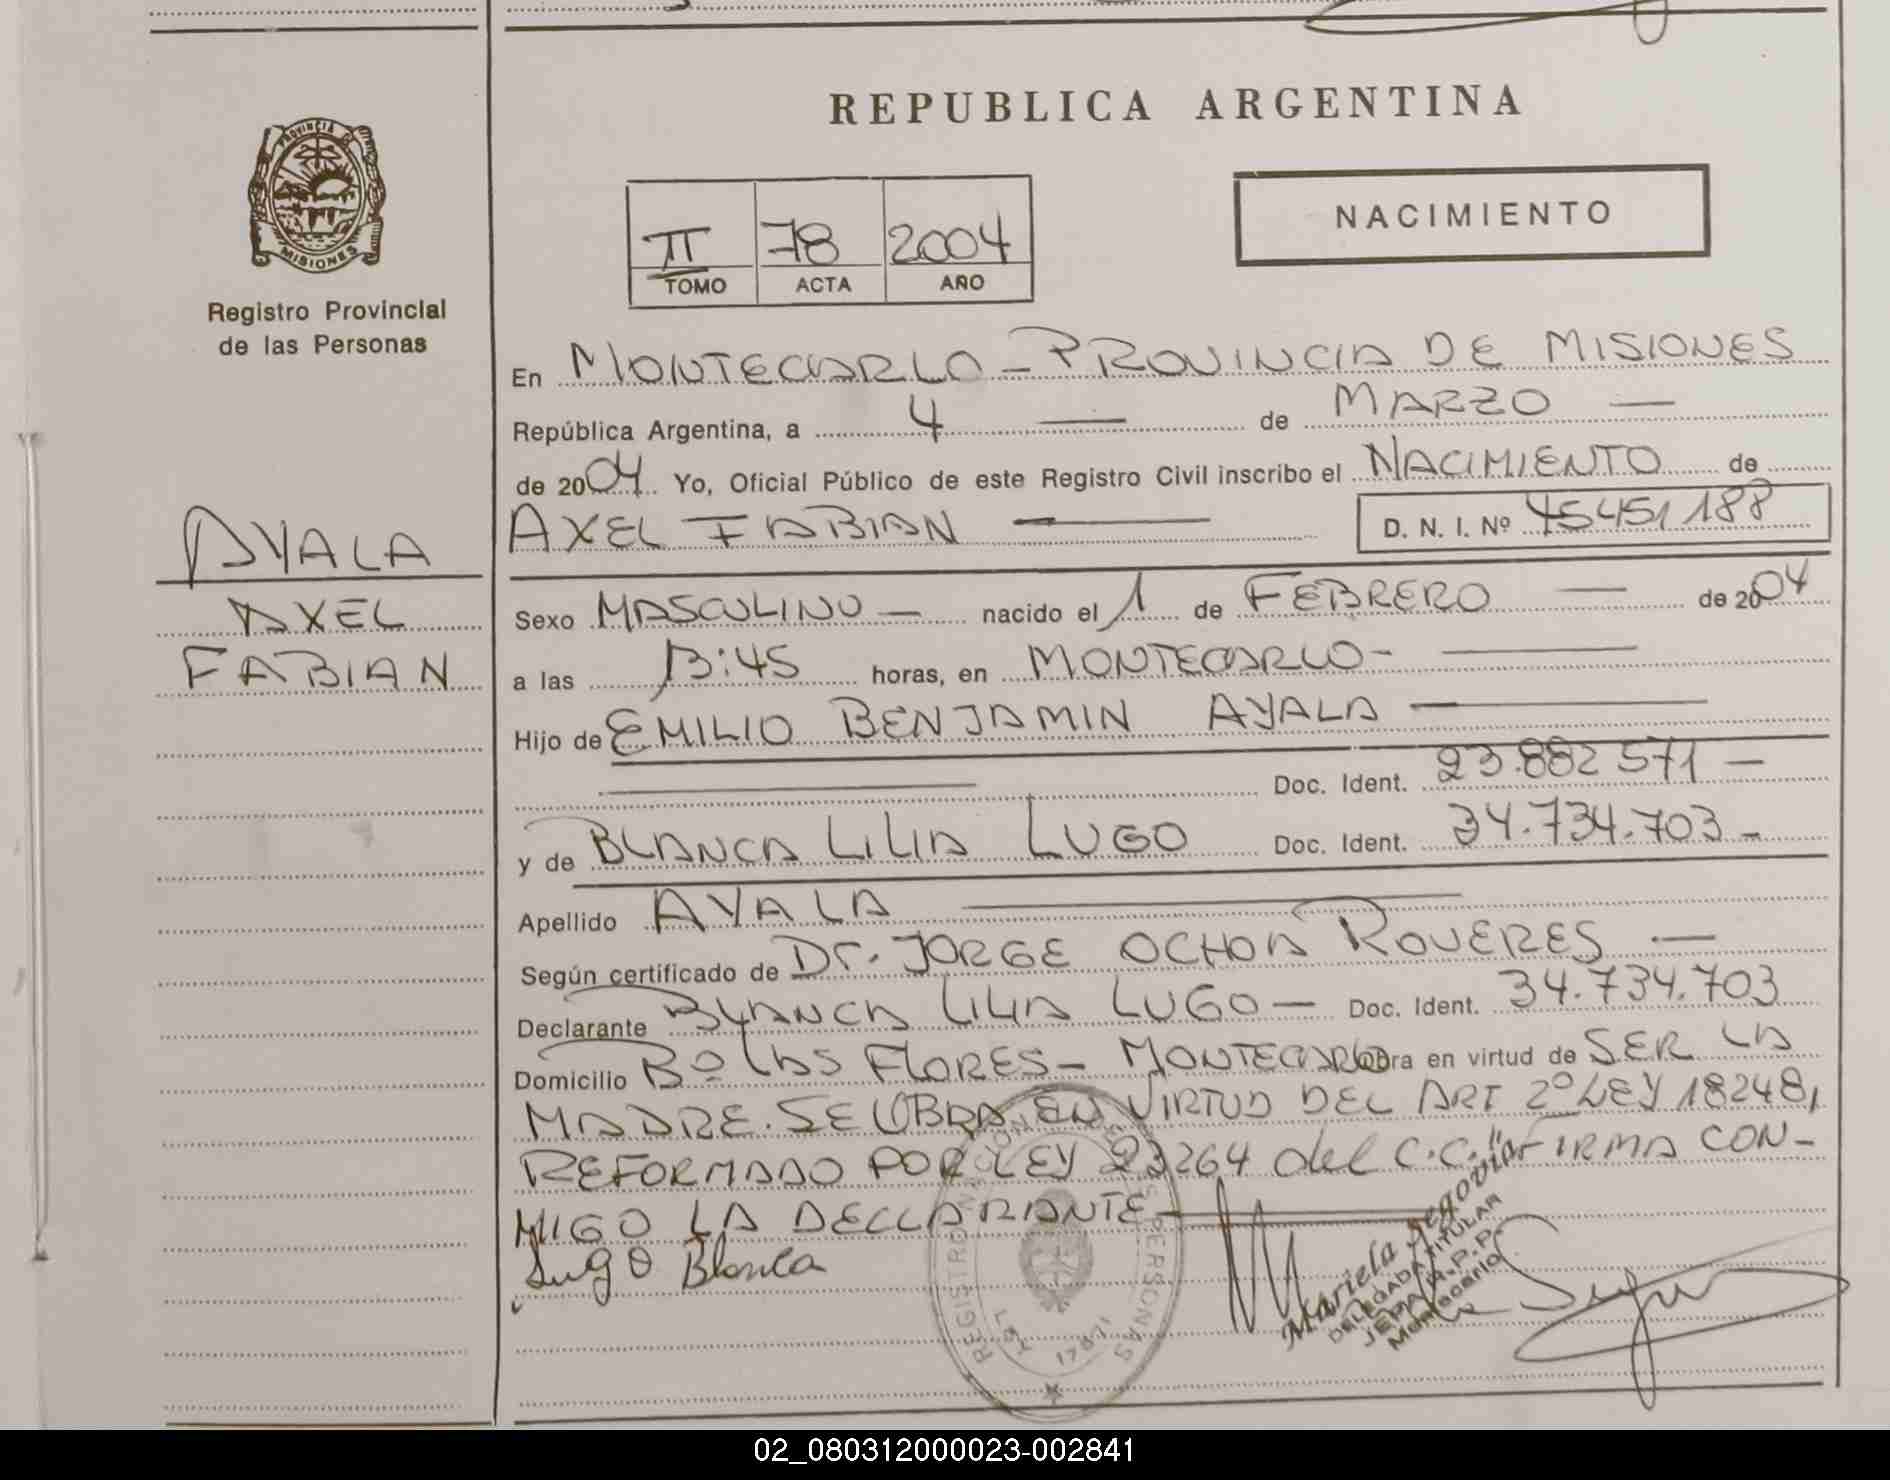 REPUBLICA ARGENTINA
PROVINCIA DE
MISIONES
Registro Provincial
de las Personas
II 78 2004
TOMO ACTA AÑO
NACIMIENTO
En MONTECARLO - PROVINCIA DE MISIONES
República Argentina, a 4 — de MARZO —
de 2004 Yo, Oficial Público de este Registro Civil inscribo el NACIMIENTO de
AXEL FABIAN — D. N. I. Nº 45451188
AYALA
AXEL
FABIAN
Sexo MASCULINO — nacido el 1 de FEBRERO — de 2004
a las 13:45 horas, en MONTECARLO- —
Hijo de EMILIO BENJAMIN AYALA —
— Doc. Ident. 23.882 571 —
y de BLANCA LILIA LUGO Doc. Ident. 34.734.703 -
Apellido AYALA —
Según certificado de Dr. JORGE OCHOA ROVERES —
Declarante BLANCA LILIA LUGO — Doc. Ident. 34.734.703
Domicilio Bº LAS FLORES - MONTECARLO obra en virtud de SER LA
MADRE. SE LABRA EN VIRTUD DEL ART 2º LEY 18248,
REFORMADO POR LEY 23264 del C.C." FIRMA CON-
MIGO LA DECLARANTE —
Lugo Blanca
Mariela Segovia
DELEGADA TITULAR
R.P.P.
Montecarlo
REGISTRO PERSONAS
02_080312000023-002841